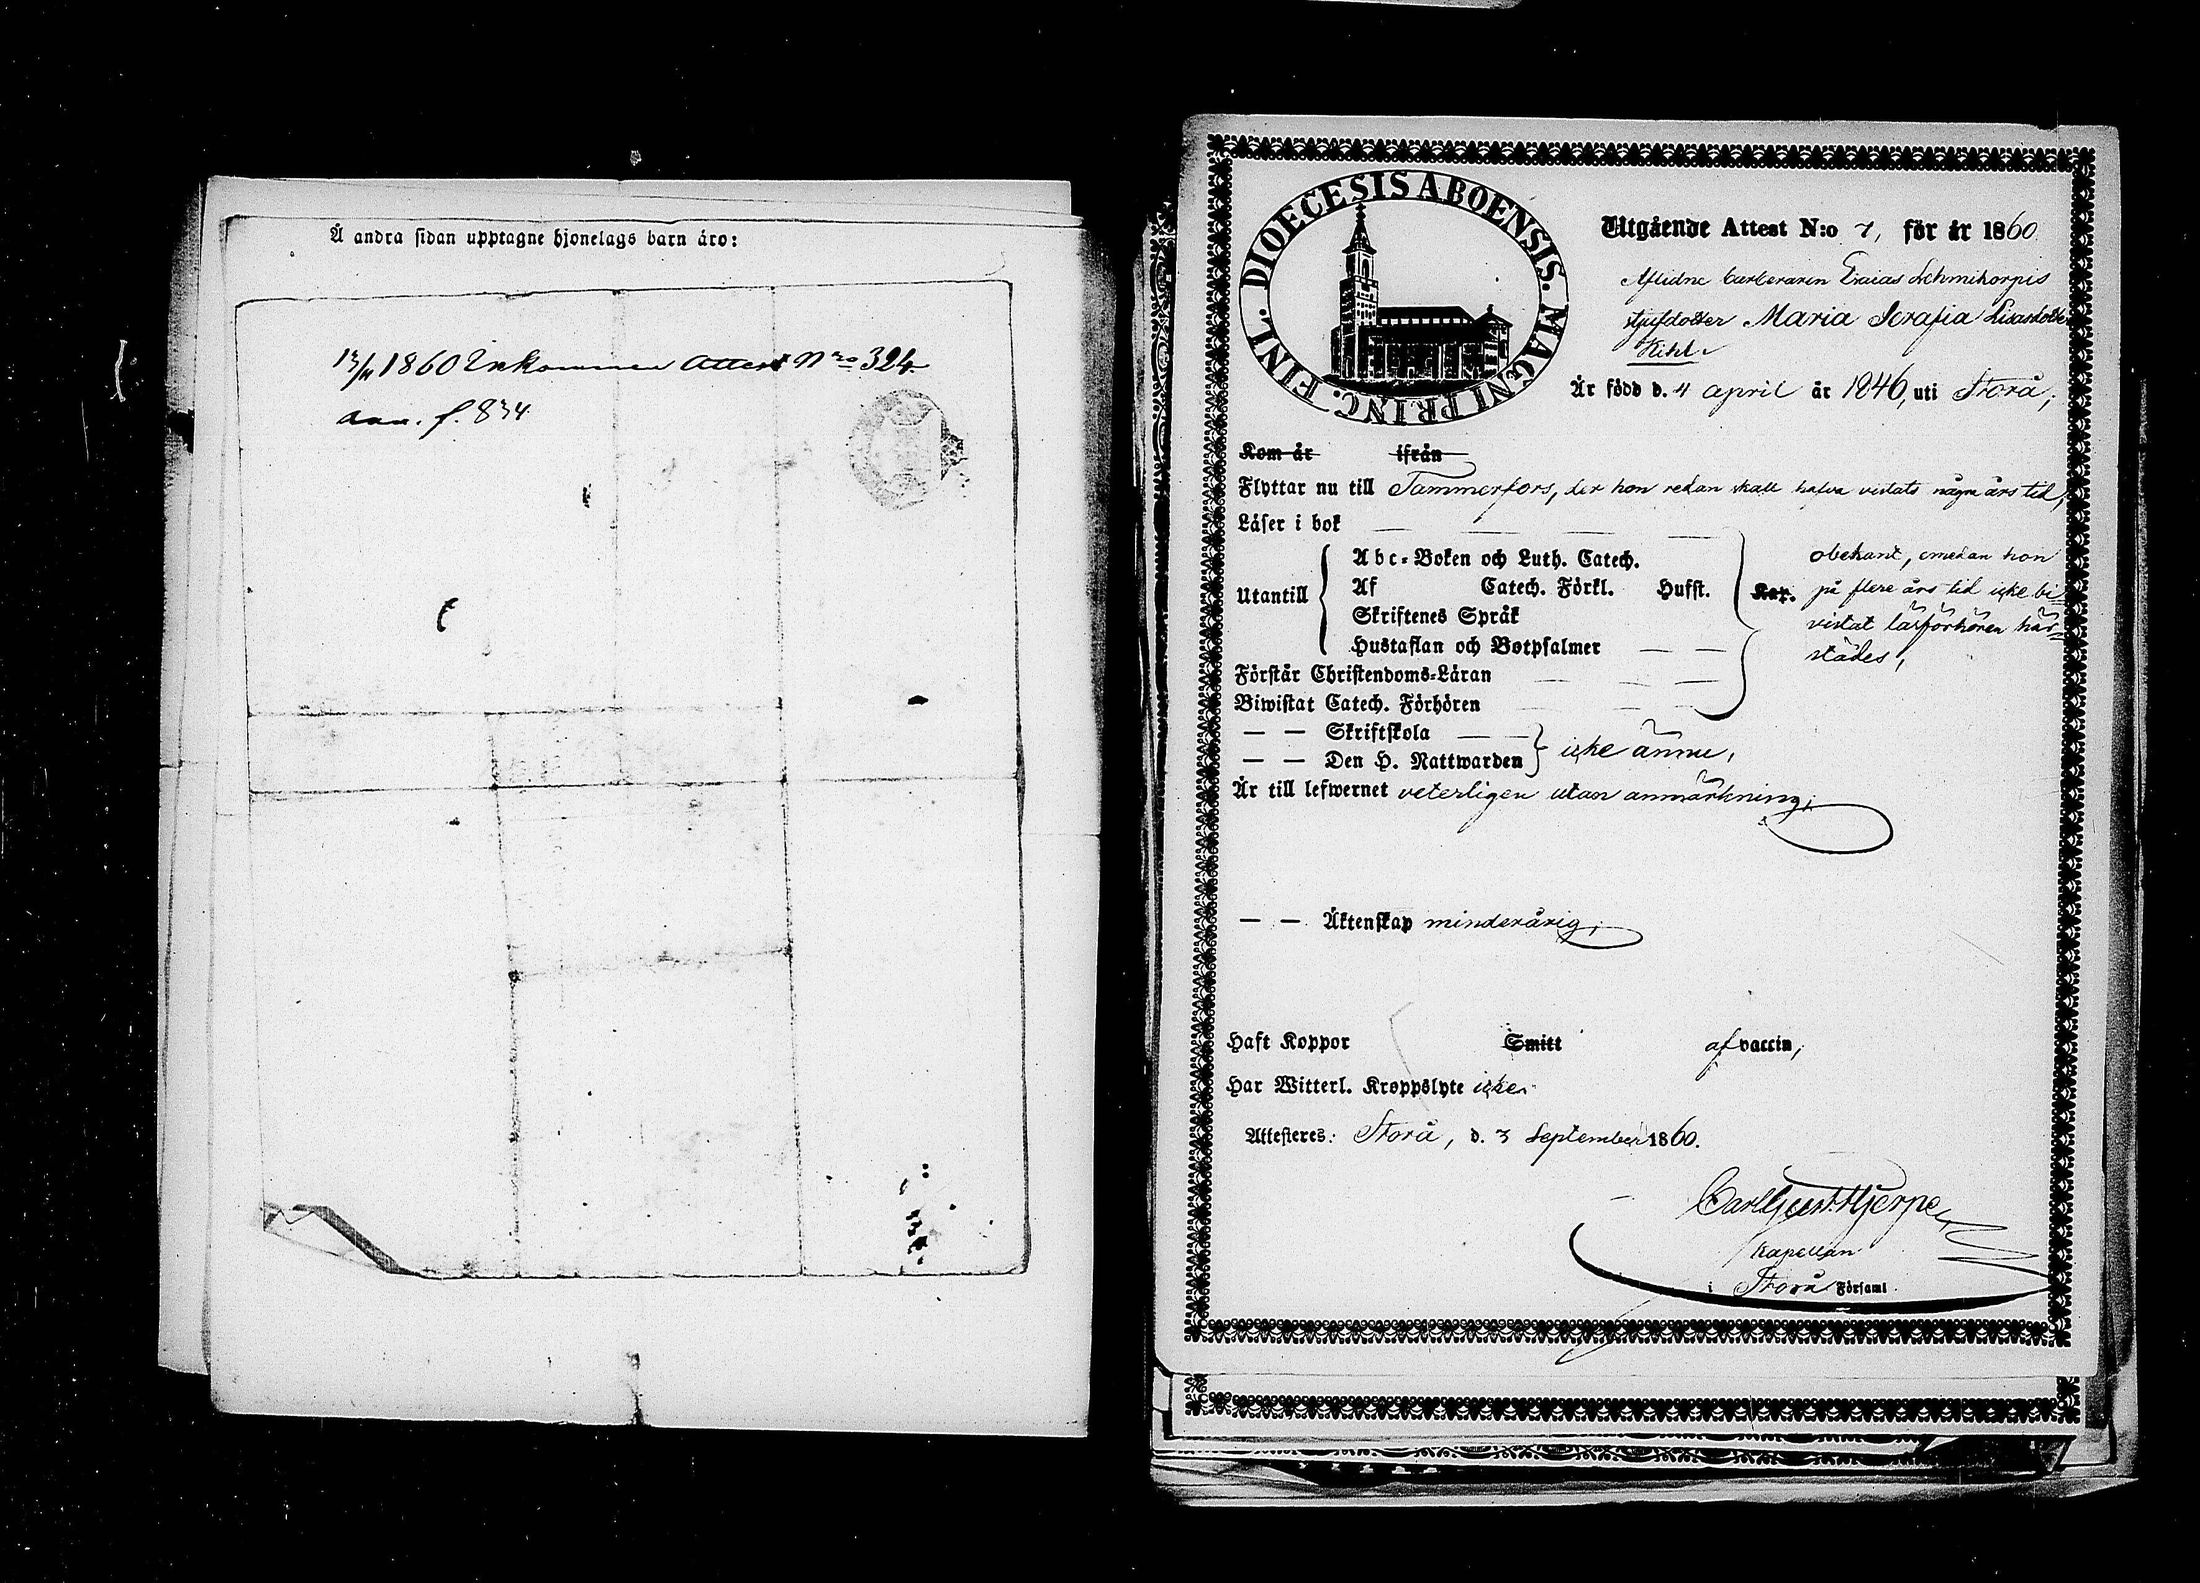 Å andra sidan upptagne hjonelags barn äro:
13/11 1860 Inkommen Attest N:ro 324.
f. 834
FINL. DIOECESIS ABOENSIS. MAGNI PRINC.
Utgående Attest N:o 7, för år 1860
Aflidne Esaias Lehmikorpis
styfdotter Maria Serafia Lisasdotter
Kihl.
Är född d. 4 april år 1846, uti Storå,
Kom år ifrån
Flyttar nu till Tammerfors, der hon redan skall hafva vistats några års tid,
Läser i bok
Utantill
Abc-Boken och Luth. Catech.
Af Catech. Förkl. Hufst.
Skriftenes Språk
Hustaflan och Botpsalmer
Kap.
obekant, emedan hon
på flere års tid icke bi-
vistat läsförhören här-
städes,
Förstår Christendoms-Läran
Biwistat Catech. Förhören
— — Skriftskola
— — Den H. Nattwarden
icke ännu,
Är till lefwernet veterligen utan anmärkning,
— — Äktenskap minderårig,
Haft Koppor Smitt af vaccin,
Har Witterl. Kroppslyte icke.
Attesteres: Storå, d. 3 September 1860.
Carl Gust. Hjerpe
Kapellan
i Storå Församl.